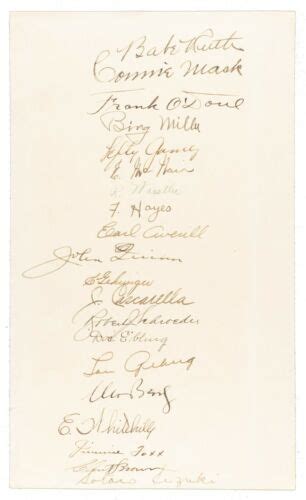 Babe Ruth
Connie Mack
Frank O'Doul
Bing Miller
Lefty Gomez
E. McNair
F. Hayes
Earl Averill
John Quinn
C. Gehringer
J. Cascarella
Robert Schroeder
Doc Ebling
Lou Gehrig
Moe Berg
E. Whitehill
Jimmie Foxx
Clint Brown
Sotaro Suzuki